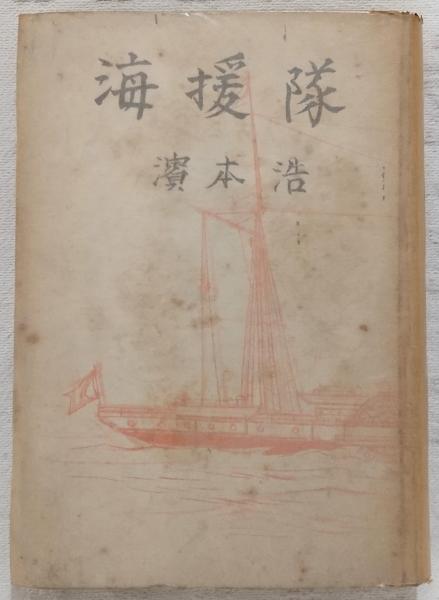 海援隊
濱本浩